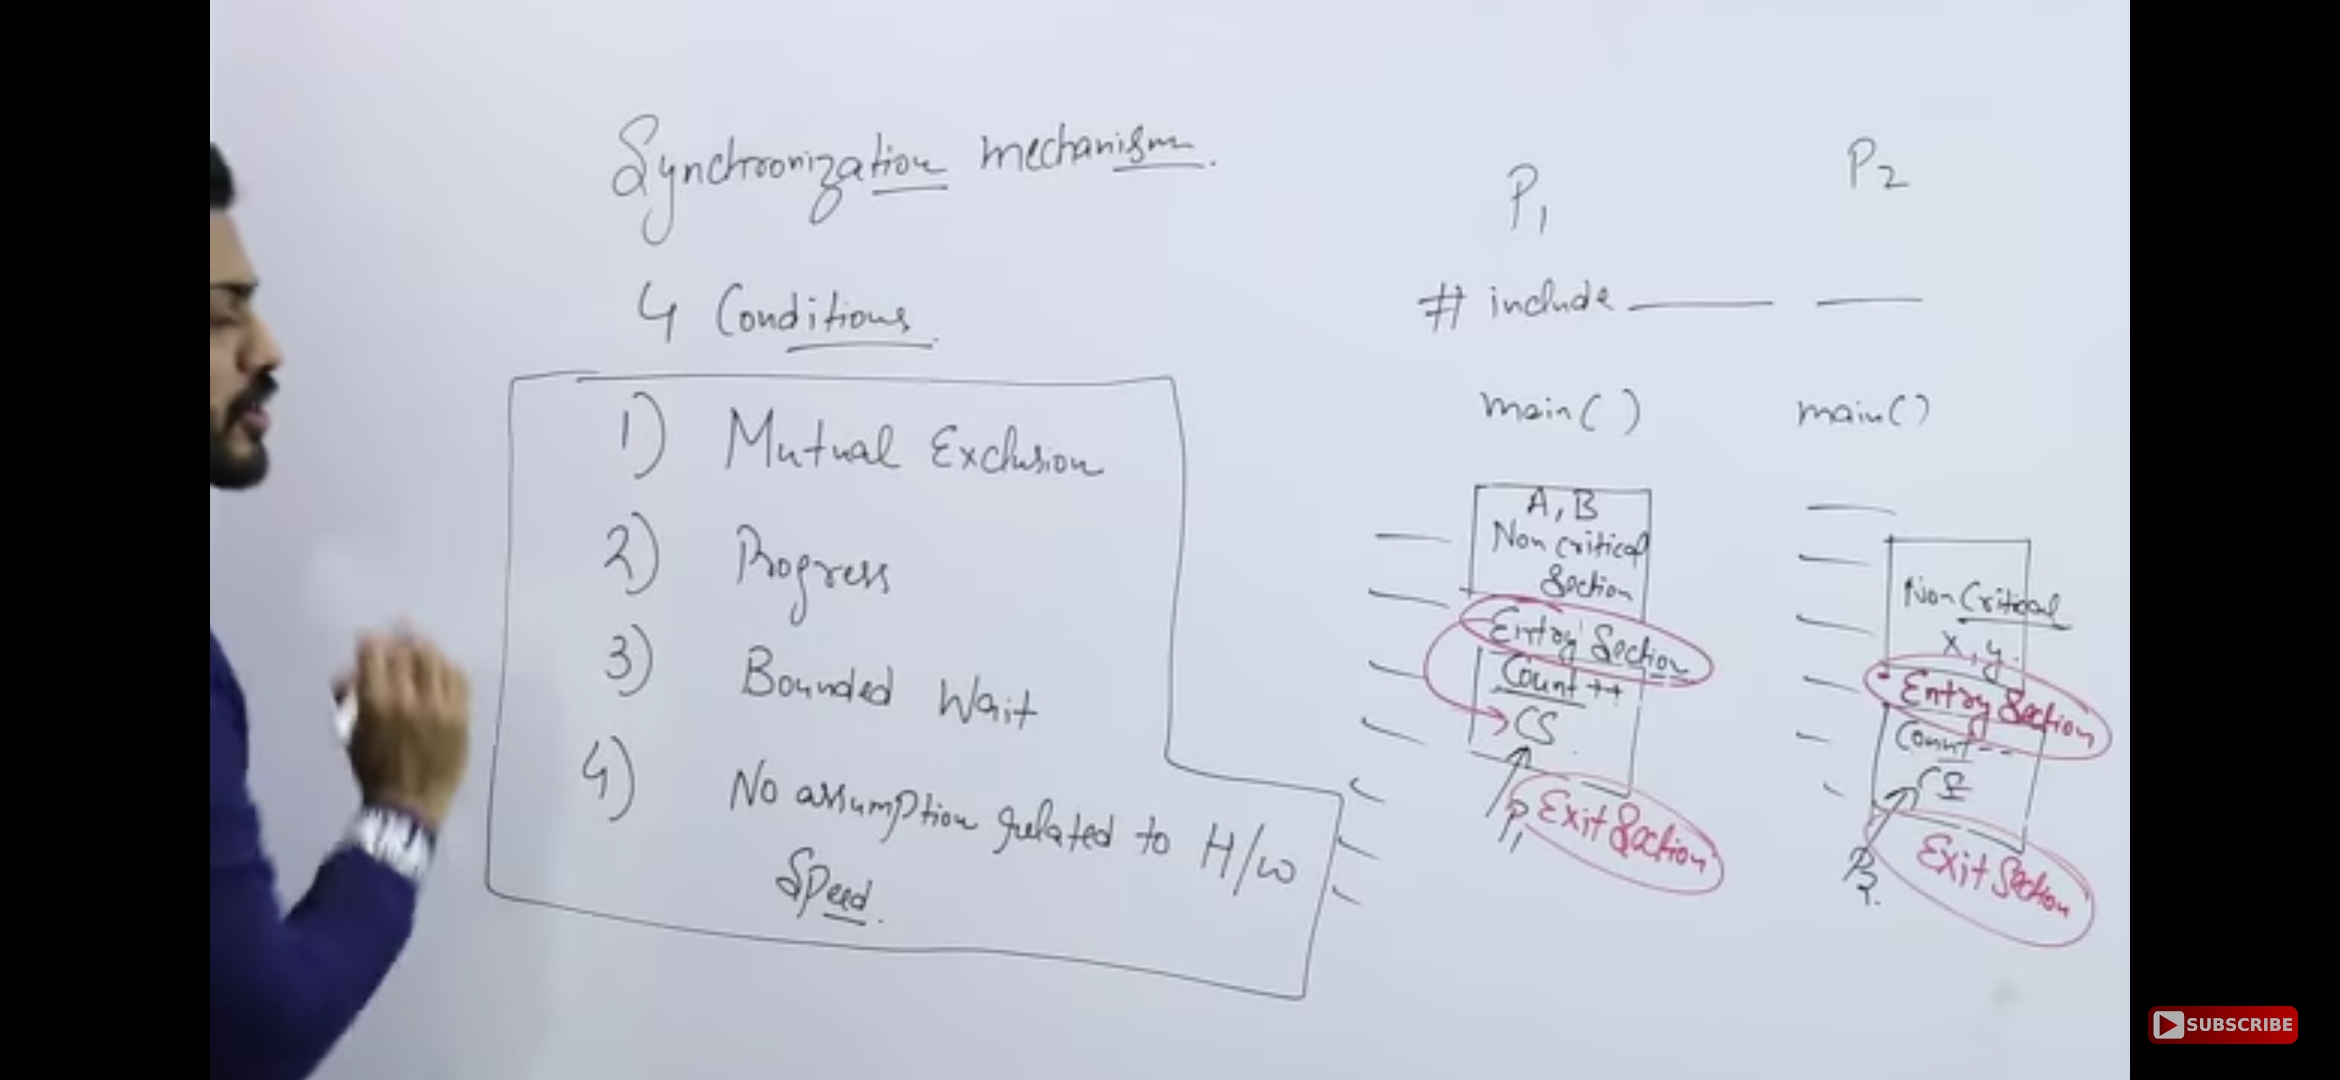 Synchronization mechanism.
4 Conditions.
1) Mutual Exclusion
2) Progress
3) Bounded Wait
4) No assumption related to H/w
Speed.
P1
# include
main( )
A, B
Non critical
Section
Entry Section
Count++
CS
P1
Exit Section
P2
main( )
Non Critical
x, y.
Entry Section
Count--
CS
P2.
Exit Section
SUBSCRIBE